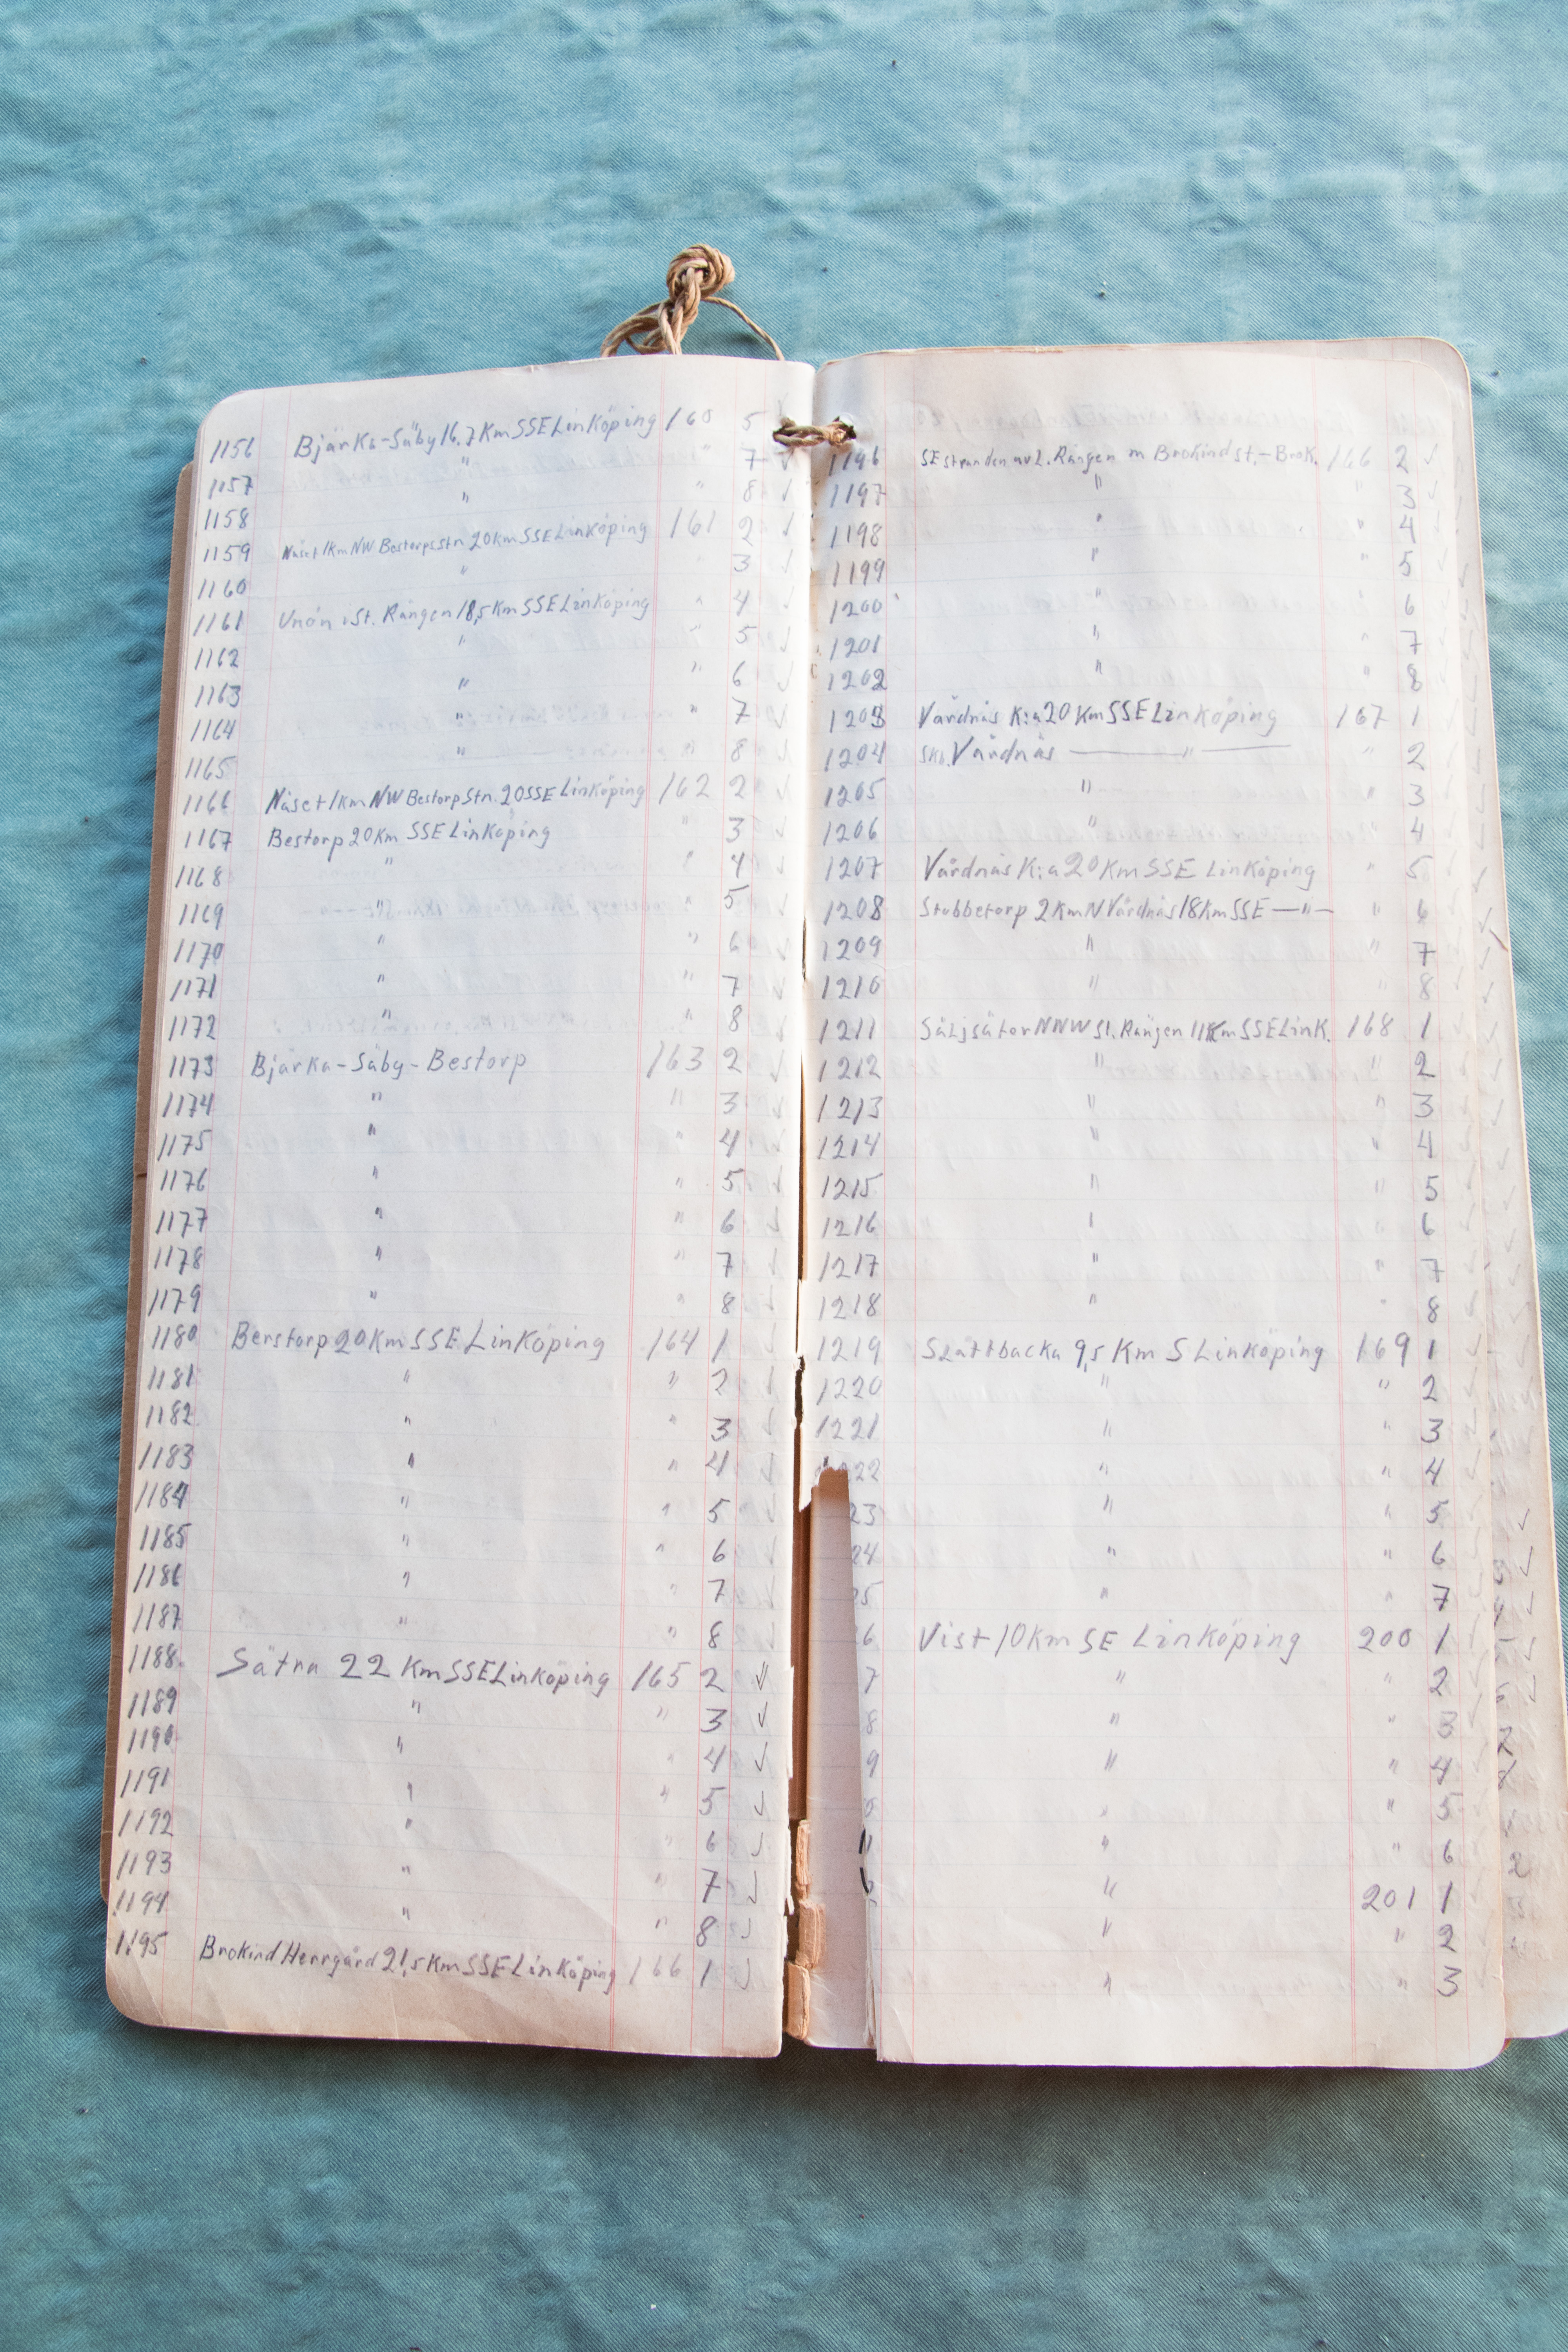 1156 Bjärka-Säby 16,7 Km SSE Linköping 160 5
1157 " " 7 ✓
1158 " " 8 ✓
1159 Näset 1 Km NW Bestorps Stn 20 Km SSE Linköping 161 2 ✓
1160 " " 3 ✓
1161 St. Rängen 18,5 Km SSE Linköping " 4 ✓
1162 " " 5 ✓
1163 " " 6 ✓
1164 " " 7 ✓
1165 " " 8 ✓
1166 Näset 1 Km NW Bestorp Stn. 20 SSE Linköping 162 2 ✓
1167 Bestorp 20 Km SSE Linköping " 3 ✓
1168 " " 4 ✓
1169 " " 5 ✓
1170 " " 6 ✓
1171 " " 7 ✓
1172 " " 8 ✓
1173 Bjärka-Säby-Bestorp 163 2 ✓
1174 " " 3 ✓
1175 " " 4 ✓
1176 " " 5 ✓
1177 " " 6 ✓
1178 " " 7 ✓
1179 " " 8 ✓
1180 Berstorp 20 Km SSE Linköping 164 1 ✓
1181 " " 2 ✓
1182 " " 3 ✓
1183 " " 4 ✓
1184 " " 5 ✓
1185 " " 6 ✓
1186 " " 7 ✓
1187 " " 8 ✓
1188 Sätra 22 Km SSE Linköping 165 2 ✓
1189 " " 3 ✓
1190 " " 4 ✓
1191 " " 5 ✓
1192 " " 6 ✓
1193 " " 7 ✓
1194 " " 8 ✓
1195 Brokind Herrgård 21,5 Km SSE Linköping 166 1 ✓
1196 SE stranden av L. Rängen m Brokind st.-Brok. 166 2 ✓
1197 " " 3 ✓
1198 " " 4 ✓
1199 " " 5 ✓
1200 " " 6 ✓
1201 " " 7 ✓
1202 " " 8 ✓
1203 Vårdnäs K:a 20 Km SSE Linköping 167 1 ✓
1204 Vårdnäs — " — " 2 ✓
1205 " " 3 ✓
1206 " " 4 ✓
1207 Vårdnäs K:a 20 Km SSE Linköping " 5 ✓
1208 Stubbetorp 2 Km N Vårdnäs 18 Km SSE —"— " 6 ✓
1209 " " 7 ✓
1210 " " 8 ✓
1211 Säljsäter NNW St. Rängen 11 Km SSE Link. 168 1 ✓
1212 " " 2 ✓
1213 " " 3 ✓
1214 " " 4 ✓
1215 " " 5 ✓
1216 " " 6 ✓
1217 " " 7 ✓
1218 " " 8 ✓
1219 Slattbacka 9,5 Km S Linköping 169 1 ✓
1220 " " 2 ✓
1221 " " 3 ✓
22 " " 4 ✓
23 " " 5 ✓
24 " " 6 ✓
25 " " 7 ✓
6 Vist 10 Km SE Linköping 200 1 ✓
7 " " 2 ✓
8 " " 3 ✓
9 " " 4 ✓
0 " " 5 ✓
1 " " 6 ✓
" 201 1
" " 2
" " 3